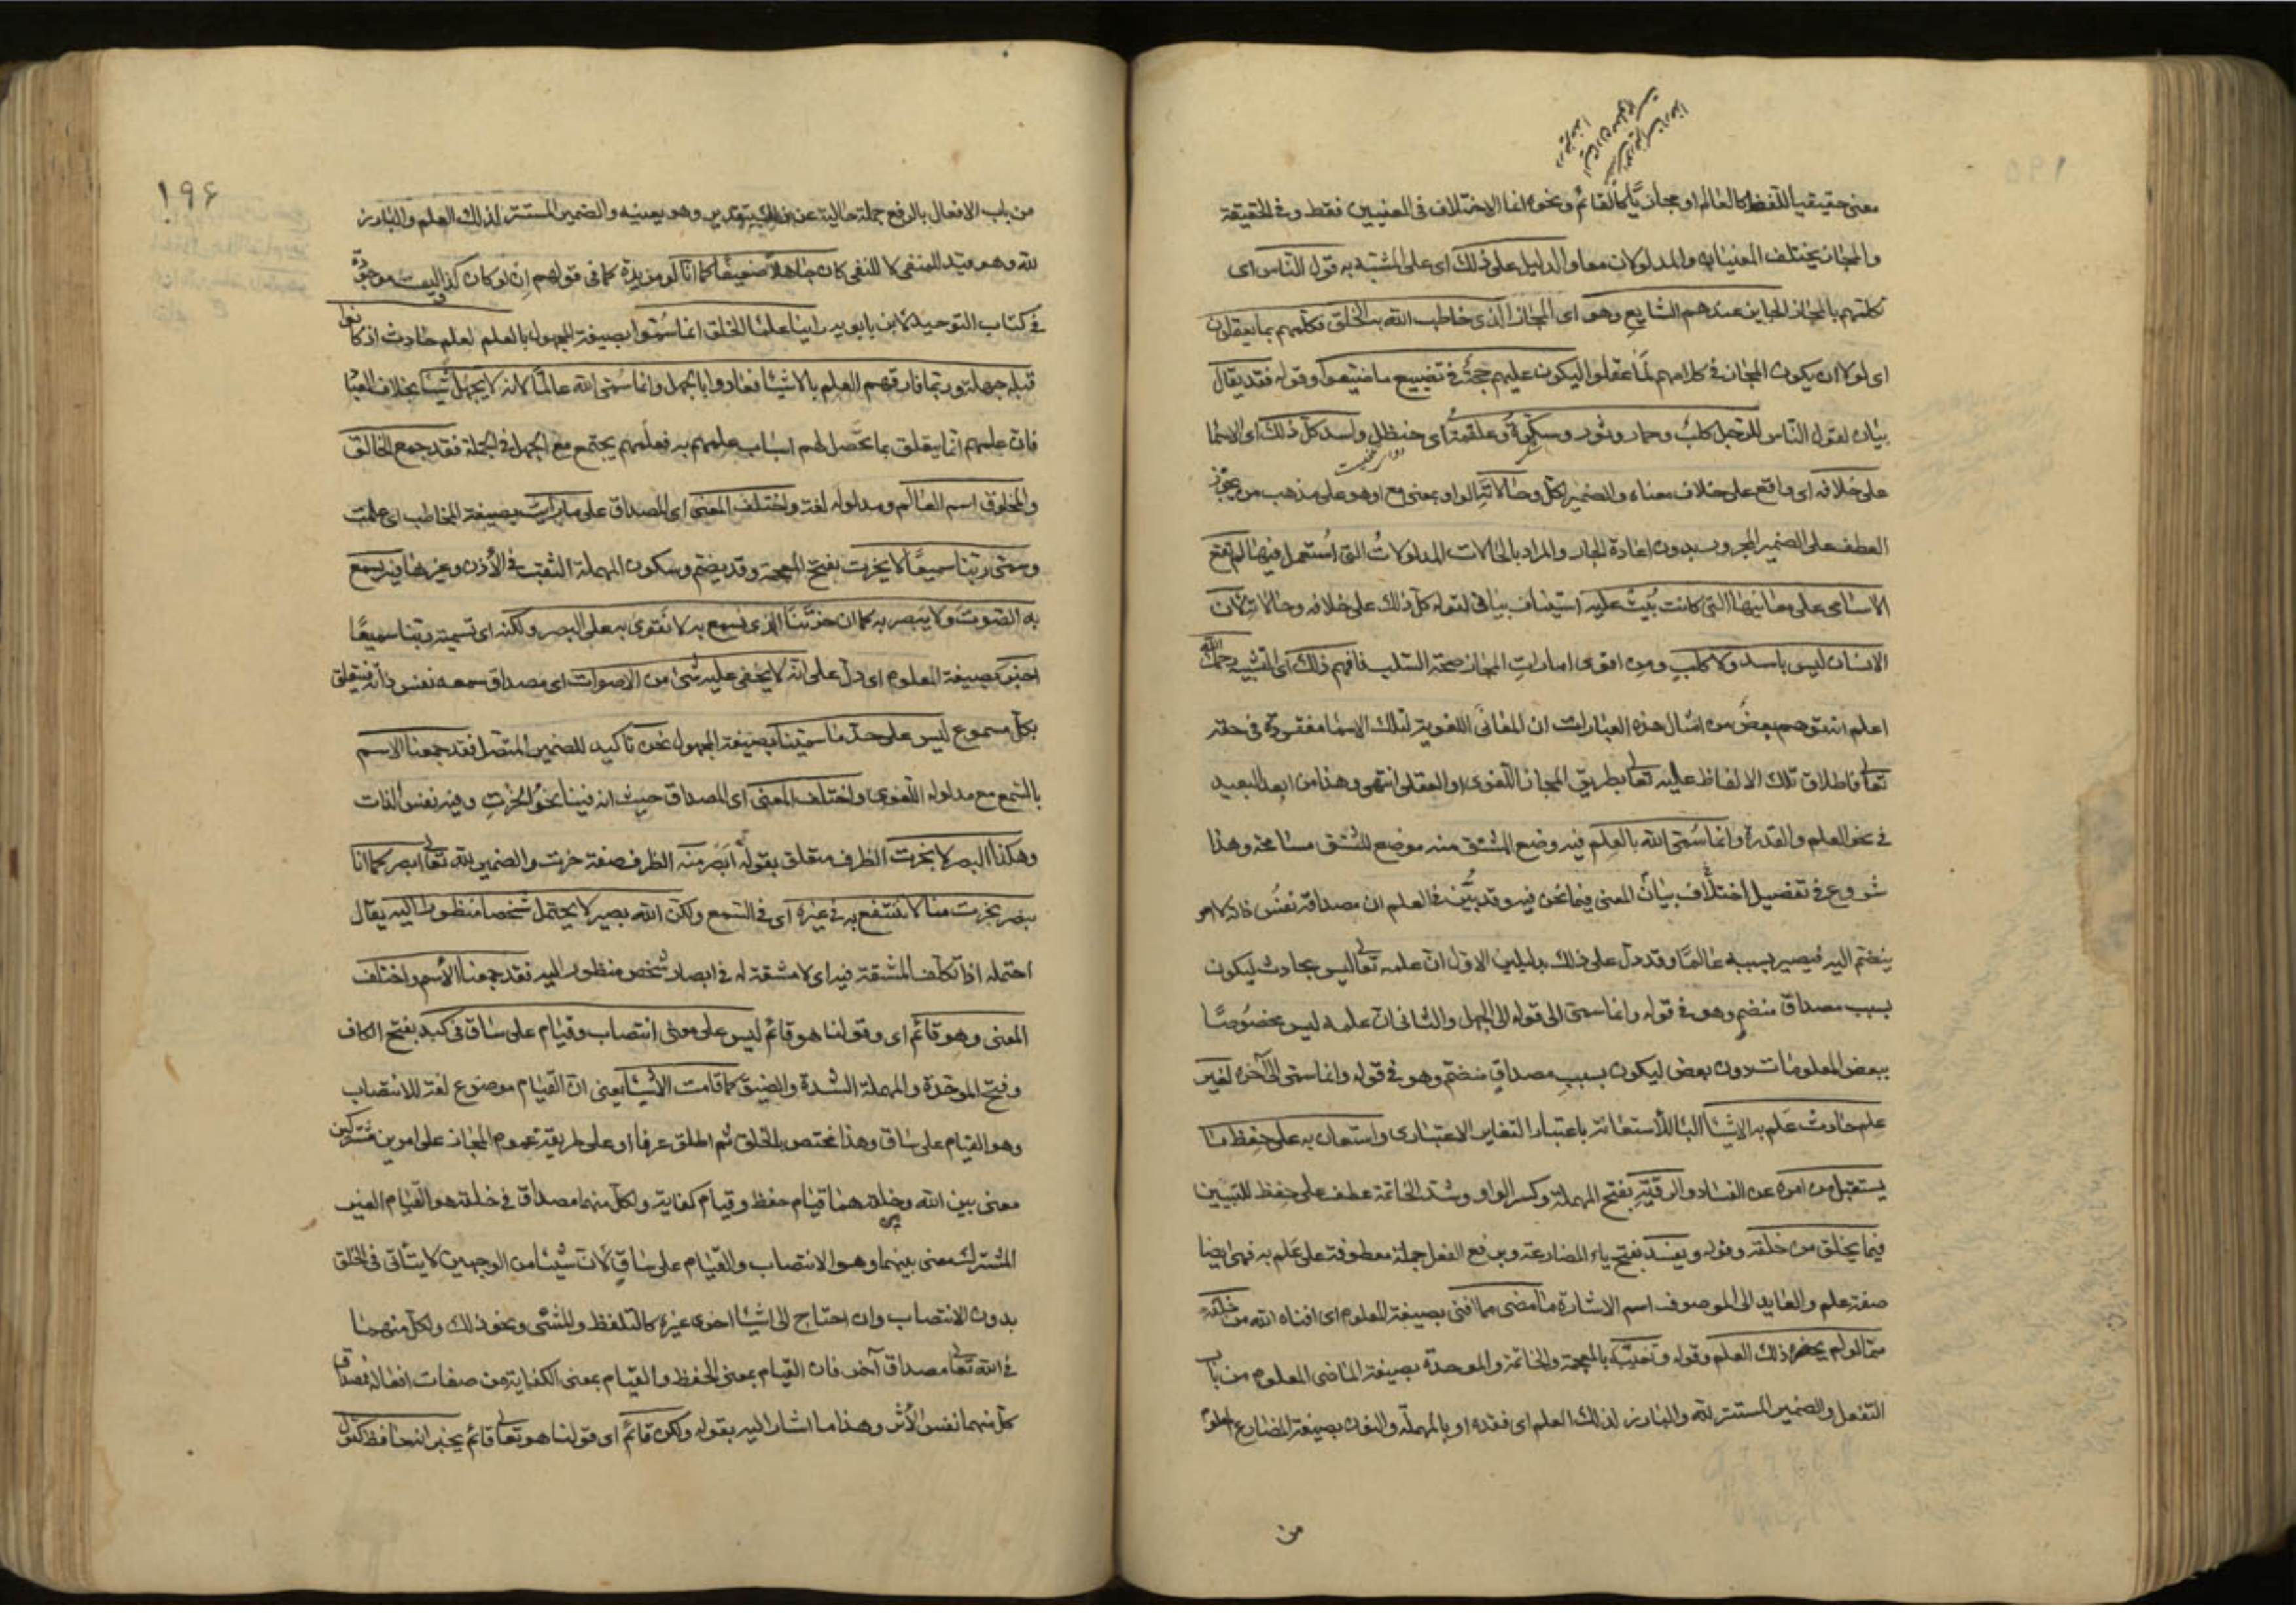 معنى حقيقيا للفظ كالعالم او مجازيا كالقائم ونحوه انما الاختلاف في المعنيين فقط وفي الحقيقة
والمجاز يختلف المعنيان والمدلولان معا والدليل على ذلك اى على المشتبه به قول الناس اى
تكلمهم بالمجاز الجاين عندهم الشايع وهو اى المجاز الذى خاطب الله به الخلق فكلمهم بما يعقلون
اى لولا ان يكون المجاز في كلامهم لما عقلوا ليكون عليهم حجة في تضييع ما ضيعوا وقوله فقد يقال
بيان لقول الناس للرجل كلب وحمار وثور وسكرة وعلقمة اى حنظل واسد كل ذلك اى الاسما
على خلافه اى واقع على خلاف معناه والضمير لكل وحالاته الواو بمعنى مع او هو على مذهب من يجوز
العطف على الضمير المجرور بدون اعادة الجار والمراد بالحالات المدلولات التى استعمل فيها لم تقع
الاسامى على معانيها التى كانت بنيت عليه استيناف بيانى لقوله كل ذلك على خلافه وحالاته لان
الانسان ليس باسد ولا كلب ومن اقوى امارات المجاز صحة السلب فافهم ذلك اى التشبيه رحمك الله
اعلم انه توهم بعض من امثال هذه العبارات ان المعانى اللغوية لتلك الاسما مفقودة في حقه
تعالى فاطلاق تلك الالفاظ عليه تعالى بطريق المجاز اللغوى او العقلى انتهى وهذا من ابعد البعيد
في نحو العلم والقدرة وانما سمى الله بالعلم فيه وضع المشتق منه موضع المشتق مسامحة وهذا
شروع في تفصيل اختلاف بيان المعنى فيما نحن فيه وقد بين في العلم ان مصداقه نفس ذاته لا امر
ينضم اليه فيصير بسببه عالما وقد دل على ذلك بدليلين الاول ان علمه تعالى ليس بحادث ليكون
بسبب مصداق منضم وهو في قوله وانما سمى الى قوله الى الجهل والثانى ان علمه ليس مخصوصا
ببعض المعلومات دون بعض ليكون بسبب مصداق منضم وهو في قوله وانما سمى الى آخره لغير
علم حادث علم به الاشيا البا للاستعانة باعتبار التغاير الاعتبارى واستعان به على حفظ ما
يستقبل من امره عن الفساد والروية بفتح المهملة وكسر الواو وشد الخاتمة عطف على حفظ للتبيين
فيما يخلق من خلقه وقوله ويفسد بفتح ياء المضارعة وبرفع الفعل جملة معطوفة على علم به فهى ايضا
صفة علم والعايد الى الموصوف اسم الاشارة ما مضى مما افنى بصيغة المعلوم اى افناه الله من خلقه
مما لو لم يحضره ذلك العلم وقوله وتغيبه بالمعجمة والخاتمة والموحدة بصيغة الماضى المعلوم من باب
التفعل والضمير المستتر لله والبارز لذلك العلم اى فقده او بالمهملة والنون بصيغة المضارع المعلوم
من
١٩۶
من باب الافعال بالرفع جملة حالية وهو يعينه والضمير المستتر لذلك العلم والبارز
لله وهو قيد للمنفى لا للنفى كان جاهلا ضعيفا كما انا لو مزيدة كما في قولهم ان لو كان كذا ليست موجودة
في كتاب التوحيد لابن بابويه راينا علما الخلق انما سموا بصيغة المجهول بالعلم لعلم حادث اذ كانوا
قبله جهلة وربما فارقهم العلم بالاشيا فعادوا الى الجهل وانما سمى الله عالما لانه لا يجهل شيا بخلاف العبا
فان علمهم انما يتعلق بما يحصل لهم اسباب علمهم به فعلمهم يجتمع مع الجهل في الجملة فقد جمع الخالق
والمخلوق اسم العالم ومدلوله لغة واختلف المعنى اى المصداق على ما رايت بصيغة المخاطب اى علمت
وسمى ربنا سميعا لا بخرت بفتح المعجمة وقد يضم وسكون المهملة الثقب في الأذن وغيرها فيه يسمع
به الصوت ولا يبصر به كما ان خرتنا الذى نسمع به لا نقوى به على البصر ولكنه اى تسميته ربنا سميعا
اخبر بصيغة المعلوم اى دل على انه لا يخفى عليه شئ من الاصوات اى مصداق سمعه نفس ذاته فيتعلق
بكل مسموع ليس على حد ما سمينا بصيغة المجهول نحن تاكيد للضمير المتصل فقد جمعنا الاسم
بالسمع مع مدلوله اللغوى واختلف المعنى اى المصداق حيث انه فينا نحو الخرت وفيه نفس الذات
وهكذا البصر لا بخرت الظرف متعلق بقوله أبصر منه الظرف صفة خرت والضمير لله تعالى ابصر كما انا
نبصر بخرت منا لا ننتفع به في غيره اى في السمع ولكن الله بصير لا يحتمل شخصا منظورا اليه يقال
احتمله اذا تكلف المشقة فيه اى لا مشقة له في ابصار شخص منظور اليه فقد جمعنا الاسم واختلف
المعنى وهو قائم اى وقولنا هو قائم ليس على معنى انتصاب وقيام على ساق في كبد بفتح الكاف
وفتح الموحدة والمهملة الشدة والضيق كما قامت الاشيا يعنى ان القيام موضوع لغة للانتصاب
وهو القيام على ساق وهذا مختص بالخلق ثم اطلق عرفا او على طريقة عموم المجاز على امرين مشتركين
معنى بين الله وخلقه هما قيام حفظ وقيام كفاية ولكل منهما مصداق في خلقه هو القيام الغير
المشترك معنى بينهما وهو الانتصاب والقيام على ساق لان شيئا من الوجهين لا يتأتى في الخلق
بدون الانتصاب وان احتاج الى اشيا اخرى غيره كالتلفظ والمشى ونحو ذلك ولكل منهما
في الله تعالى مصداق آخر فان القيام بمعنى الحفظ والقيام بمعنى الكفاية من صفات افعاله فمصداق
كل منهما نفس الأثر وهذا ما اشار اليه بقوله ولكن قائم اى قولنا هو تعالى قائم يخبر انه حافظ كقول